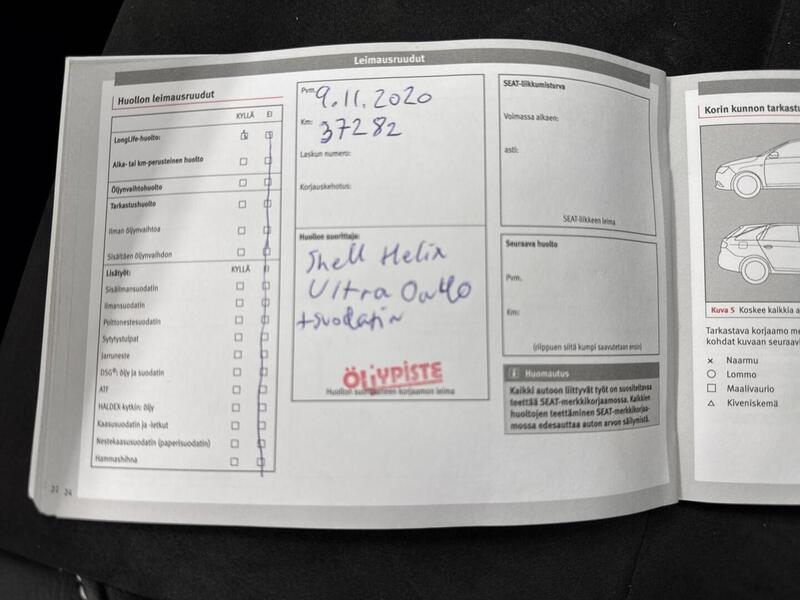 Leimausruudut
Huollon leimausruudut
KYLLÄ EI
LongLife-huolto:
Aika- tai km-perusteinen huolto
Öljynvaihtohuolto
Tarkastushuolto
Ilman öljynvaihtoa
Sisältäen öljynvaihdon
Lisätyöt: KYLLÄ EI
Sisäilmansuodatin
Ilmansuodatin
Polttonestesuodatin
Sytytystulpat
Jarruneste
DSG®: öljy ja suodatin
ATF
HALDEX-kytkin: öljy
Kaasusuodatin ja -letkut
Nestekaasusuodatin (paperisuodatin)
Hammashihna
24
Pvm. 9.11.2020
Km: 37282
Laskun numero:
Korjauskehotus:
Huollon suorittaja:
Shell Helix
Ultra 0w40
+suodatin
ÖLJYPISTE
Huollon korjaamon leima
SEAT-liikkumisturva
Voimassa alkaen:
asti:
SEAT-liikkeen leima
Seuraava huolto
Pvm.
Km:
(riippuen siitä kumpi saavutetaan ensin)
i Huomautus
Kaikki autoon liittyvät työt on suositeltava
teettää SEAT-merkkikorjaamossa. Kaikkien
huoltojen teettäminen SEAT-merkkikorjaa-
mossa edesauttaa auton arvon säilymistä.
Korin kunnon tarkastu
Kuva 5 Koskee kaikkia a
Tarkastava korjaamo me
kohdat kuvaan seuraavi
× Naarmu
○ Lommo
□ Maalivaurio
△ Kiveniskemä